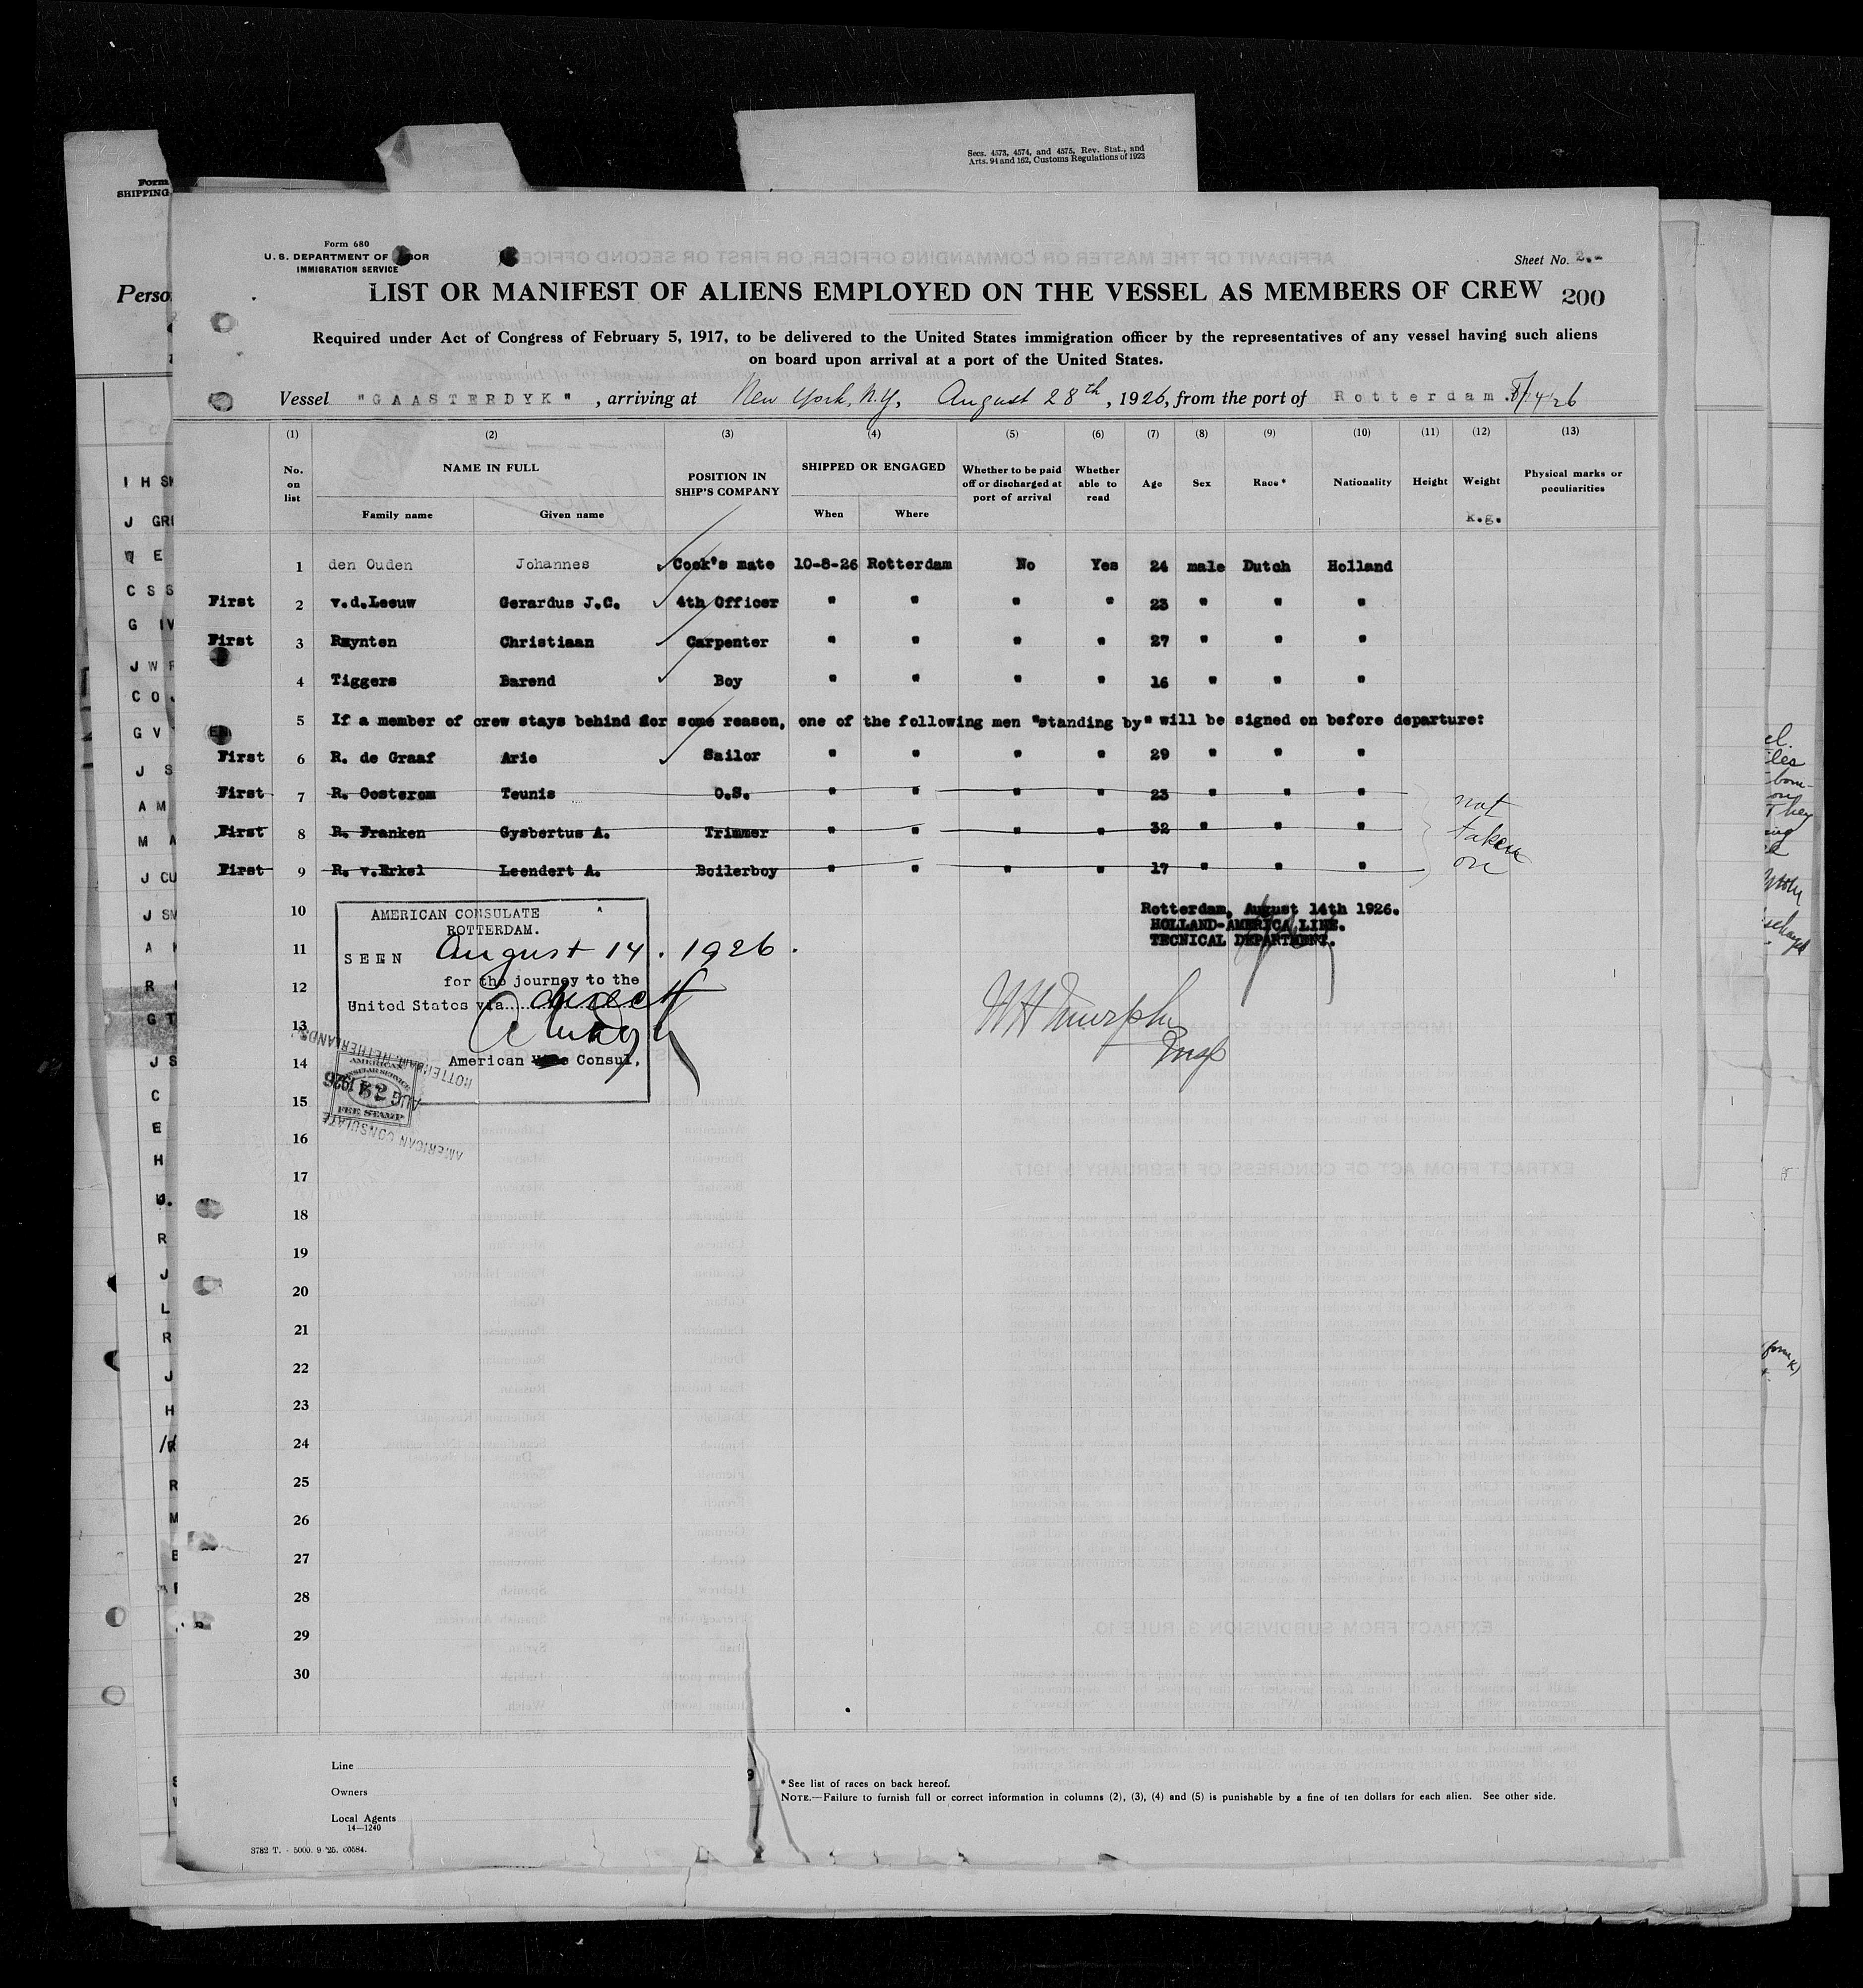 Secs. 4573, 4574, and 4575, Rev. Stat., and
Arts. 94 and 162, Customs Regulations of 1923
Form
SHIPPING
Form 680
U. S. DEPARTMENT OF LABOR
IMMIGRATION SERVICE
Sheet No. 2.-
LIST OR MANIFEST OF ALIENS EMPLOYED ON THE VESSEL AS MEMBERS OF CREW 200
Required under Act of Congress of February 5, 1917, to be delivered to the United States immigration officer by the representatives of any vessel having such aliens
on board upon arrival at a port of the United States.
Vessel "GAASTERDYK", arriving at New York, N.Y., August 28th, 1926, from the port of Rotterdam. 8/14/26
(1) (2) (3) (4) (5) (6) (7) (8) (9) (10) (11) (12) (13)
No. on list NAME IN FULL Family name Given name POSITION IN SHIP'S COMPANY SHIPPED OR ENGAGED When Where Whether to be paid off or discharged at port of arrival Whether able to read Age Sex Race* Nationality Height Weight K.g. Physical marks or peculiarities
1 den Ouden Johannes Cook's mate 10-8-26 Rotterdam No Yes 24 male Dutch Holland
First 2 v.d.Leeuw Gerardus J.C. 4th Officer " " " " 23 " " "
First 3 Reynten Christiaan Carpenter " " " " 27 " " "
4 Tiggers Barend Boy " " " " 16 " " "
5 If a member of crew stays behind for some reason, one of the following men "standing by" will be signed on before departure:
First 6 R. de Graaf Arie Sailor " " " " 29 " " "
First 7 R. Oosterom Teunis O.S. " " " " 23 " " "
First 8 R. Franken Gysbertus A. Trimmer " " " " 32 " " "
First 9 R. v.Erkel Leendert A. Boilerboy " " " " 17 " " "
not
taken
on
10
11
12
13
14
15
16
17
18
19
20
21
22
23
24
25
26
27
28
29
30
AMERICAN CONSULATE
ROTTERDAM.
SEEN August 14. 1926.
for the journey to the
United States via direct
American Vice Consul.
AMERICAN
CONSULAR SERVICE
FEE STAMP
AUG 14 1926
AMERICAN CONSULATE
ROTTERDAM, NETHERLANDS
Rotterdam, August 14th 1926.
HOLLAND-AMERICA LINE.
TECNICAL DEPARTMENT.
W H Murphy
Insp
Line
Owners
Local Agents
14—1240
*See list of races on back hereof.
NOTE.—Failure to furnish full or correct information in columns (2), (3), (4) and (5) is punishable by a fine of ten dollars for each alien. See other side.
3782 T. - 5000. 9 '25. 60584.